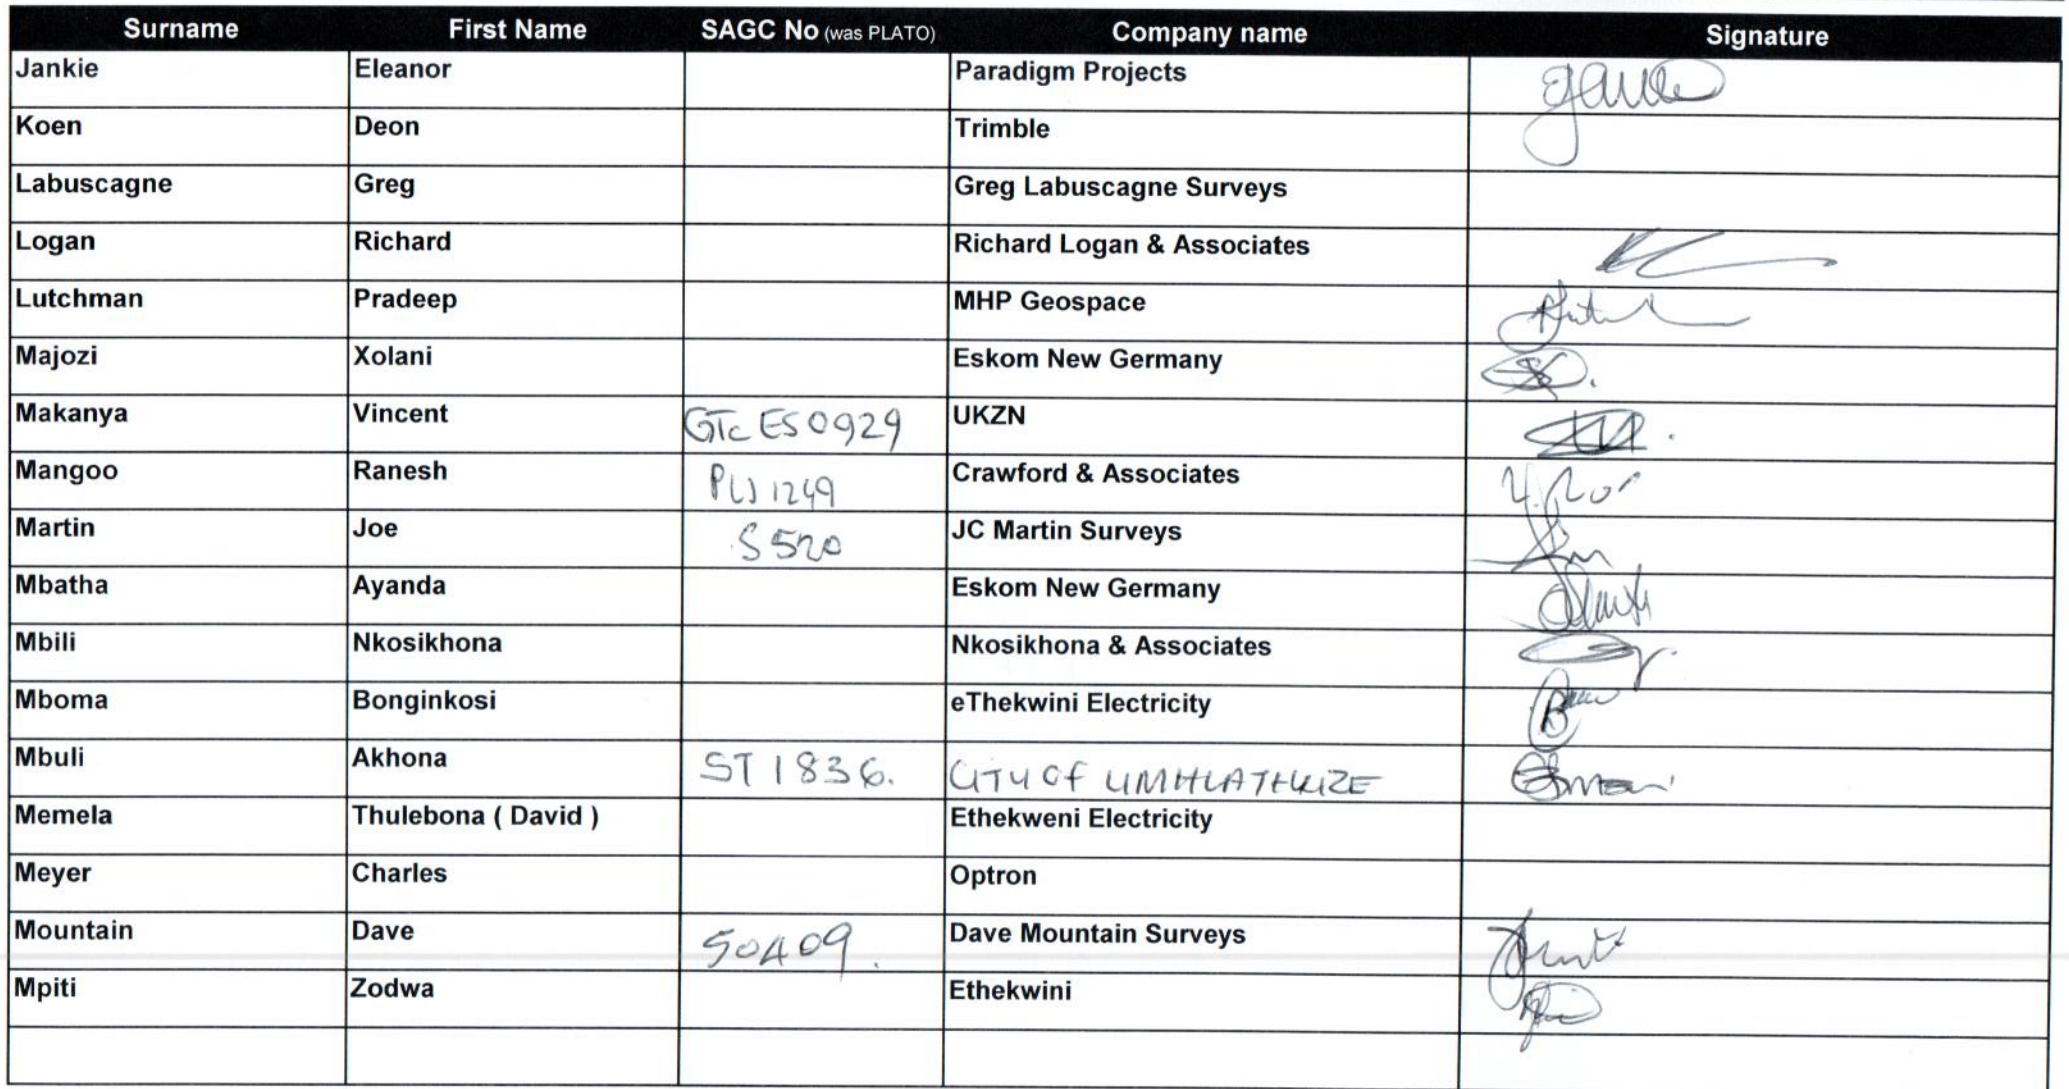 Surname First Name SAGC No (was PLATO) Company name Signature
Jankie Eleanor Paradigm Projects
Koen Deon Trimble
Labuscagne Greg Greg Labuscagne Surveys
Logan Richard Richard Logan & Associates
Lutchman Pradeep MHP Geospace
Majozi Xolani Eskom New Germany
Makanya Vincent GTc ES0929 UKZN
Mangoo Ranesh 1249 Crawford & Associates
Martin Joe S 520 JC Martin Surveys
Mbatha Ayanda Eskom New Germany
Mbili Nkosikhona Nkosikhona & Associates
Mboma Bonginkosi eThekwini Electricity
Mbuli Akhona ST 1836. CITY OF UMHLATHUZE
Memela Thulebona ( David ) Ethekweni Electricity
Meyer Charles Optron
Mountain Dave S0409. Dave Mountain Surveys
Mpiti Zodwa Ethekwini